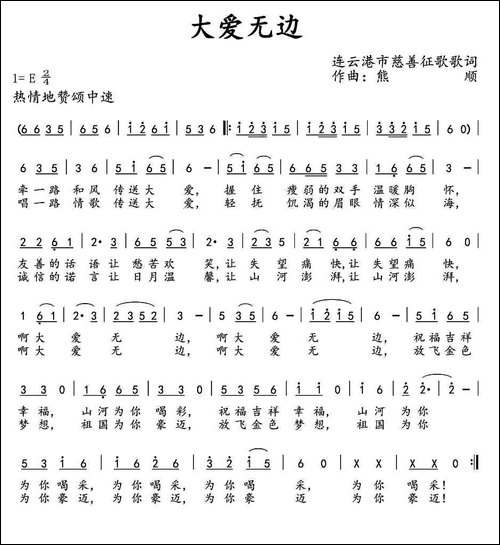 大爱无边
连云港市慈善征歌歌词
1=E 2/4
作曲：熊 顺
热情地赞颂中速
(6 6 3 5 | 6 5 5 | i 2 6 i | 5 3 6 ‖: i 2 3 i 5 | i 2 3 i 5 | i 2 i 5 | 6 0) |
6 3 5 | 3 6 | 5 i 6 5 | 6 - | 5 i 6 | 5 6 5 3 5 | 1 6 6 5 | 3 - |
牵一路 和风 传送大 爱， 握 住 瘦弱的双手 温暖胸 怀，
唱一路 情歌 传送大 爱， 轻 抚 饥渴的眉眼 情深似 海，
2 2 6 1 | 2· 3 | 6 5 5 3 | 5· 3 | 6 i 6 5 | 3· 5 | 6 6 i 5 |
友善的话 语让 慈苦欢 笑，让 失望痛 快，让 失望痛 快，
诚信的诺 言让 日月温 馨，让 山河澎 湃，让 山河澎 湃，
1 6 1 | 2· 3 | 2 3 5 2 | 3 - | 5 3 5 | 6 - | i 2 i 5 | 6 - | 5 3 5 6 |
啊大 爱 无 边， 啊大 爱 无 边， 祝福吉祥
啊大 爱 无 边， 啊大 爱 无 边， 放飞金色
3 3 0 | 1 6 6 5 | 3 3 0 | 5 3 5 6 | i i 0 | i 6 i 6 | 2· 2 | 2 - |
幸福， 山河为你 喝彩， 祝福吉祥 幸福， 山河为你
梦想， 祖国为你 豪迈， 放飞金色 梦想， 祖国为你
5 3 i 6 | 5 3 i 6 | i 2· | 6 0 :‖ 2 3 i 5 | 6 - | 6 0 | X X | X X 0 ‖
为你喝采，为你喝采， 为你喝 采， 为你喝 采！
为你豪迈，为你豪迈， 为你豪 迈， 为你豪 迈！